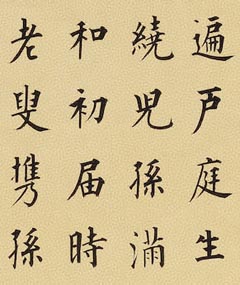 遍戸庭生
繞児孫満
和初届時
老叟携孫